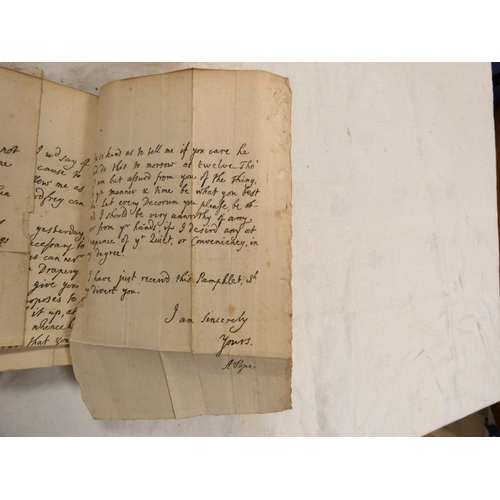 not
I wd say of
cause to
llow me as
dfrey can
yesterday
ecessary to
can never
Drapery
give you
oposes to
it up, at
that you
so kind as to tell me if you care he
d do this to morrow at twelve. Tho'
am but assurd from you of the Thing,
manner & time be what you best
let every Decorum you please, be ob-
I should be very unworthy of any,
or from yr hands, if I desird any at
of yr Quiet, or Conveniency, in
y degree.
I have just recevd this Pamphlet, wch
y divert you.
I am Sincerely
Yours.
A Pope